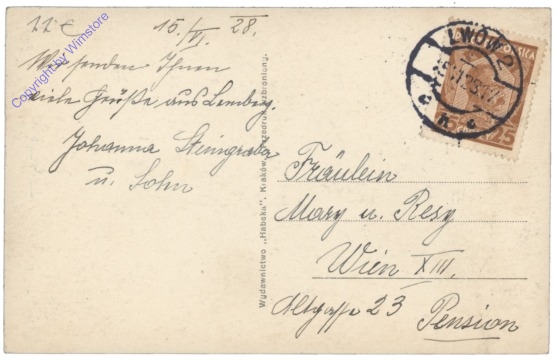 15./VI. 28.
Wir senden Ihnen
viele Grüße aus Lemberg.
Johanna
u. Sohn
Copyright by Wimstore
Wydawnictwo „Habeka", Kraków. wzbroniony.
LWÓW 2
25
Fräulein
Mary u. Resy
Wien XIII.
Altgasse 23
Pension